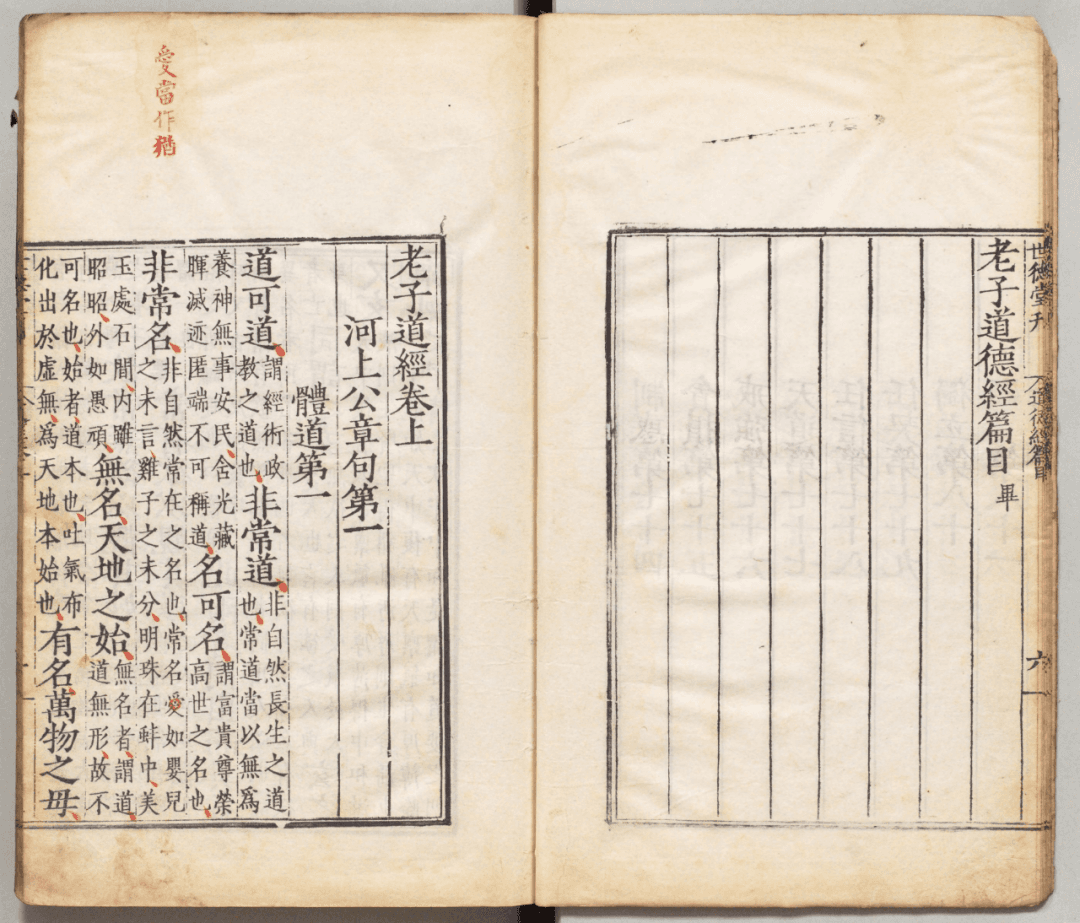 世德堂刊
道德經篇目
六
老子道德經篇目 畢
愛當作猶
老子道經卷上
河上公章句第一
體道第一
道可道謂經術政教之道也非常道非自然長生之道也常道當以無爲
養神無事安民舍光藏暉滅迹匿端不可稱道名可名謂富貴尊榮高世之名也
非常名非自然常在之名也常名愛如嬰兒之未言雞子之未分明珠在蚌中美
玉處石間內雖昭昭外如愚頑無名天地之始無名者謂道道無形故不
可名也始者道本也吐氣布化出於虛無爲天地本始也有名萬物之母